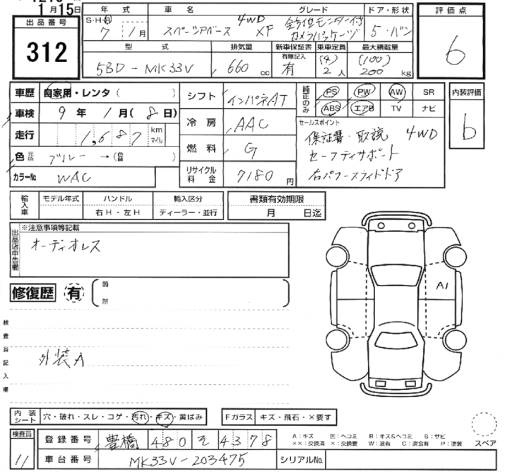 1月15日
出品番号
312
年式
S・H・R
7 / 1月
車名
スペーシアベース 4WD XF
グレード
全方位モニター付
カメラパッケージ
ドア・形状
5・バン
評価点
6
型式
5BD-MK33V
排気量
660 cc
新車保証書
有無記入
有
乗車定員
(4)
2人
最大積載量
(100)
200 kg
車歴 自家用・レンタ( )
車検 9年 1月(8日)
走行 1,687 km マイル
色 ブルー →( )
カラーNo WAC
シフト インパネAT
冷房 AAC
燃料 G
リサイクル料金 7180円
PS PW AW SR
ABS エアB TV ナビ
セールスポイント
保証書・取説 4WD
セーフティサポート
右パワースライドドア
内装評価
b
輸入車
モデル年式
ハンドル
右H・左H
輸入区分
ディーラー・並行
書類有効期限
月 日迄
※注意事項等記載
オーディオレス
修復歴 有
検査員記入欄
外装A
A1
内装シート 穴・破れ・スレ・コゲ・汚れ・キズ・黄ばみ
Fガラス キズ・飛石・×要す
検査員
11
登録番号 豊橋 480 そ 4378
A:キズ E:ヘコミ R:キズ&ヘコミ S:サビ
××:交換済 ×:交換要 W:波有 C:腐食 P:塗装
スペア
車台番号 MK33V-203475
シリアルNo.